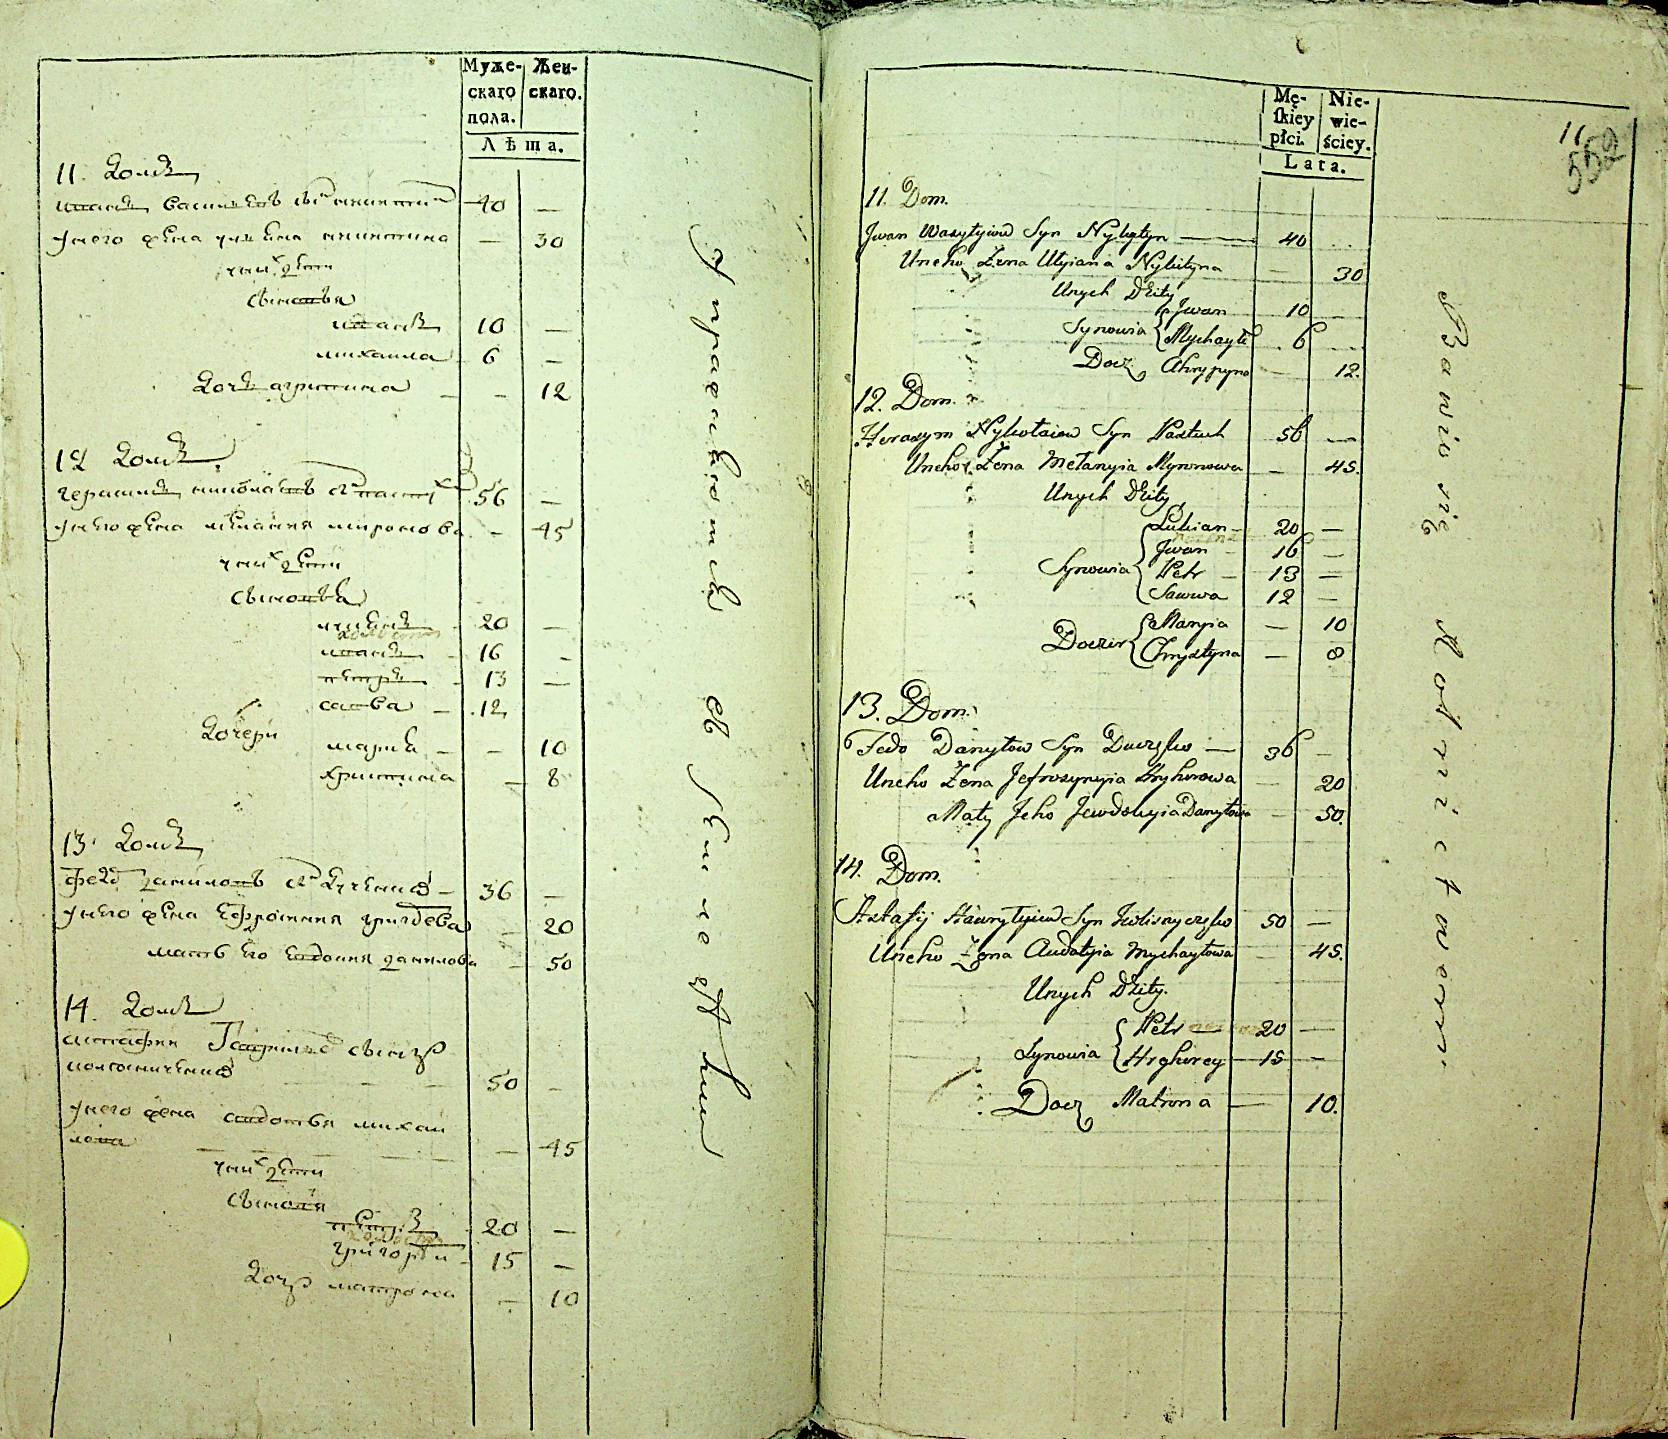 Муже-
скаго
пола.
Жен-
скаго.
Лѣта.
11. Домъ
иванъ василіевъ снъ никитин 40 —
у него жена уліана никитина — 30
у них дети
сыновья
иванъ 10 —
михаила 6 —
дочь агрипина — 12
12 Домъ
герасимъ николаевъ снъ пастух 56 —
у него жена мелания миронова — 45
у них дети
сыновья
лукиянъ 20 —
иванъ 16 —
петръ 13 —
савва 12
дочери мария — 10
христина — 8
13 Домъ
федо данилов снъ 36 —
у него жена ефросиния григорева — 20
мать его евдокия данилова — 50
14. Домъ
астафии Гаврилов сынъ
50 —
у него жена авдотья михаи
лова — 45
у них дети
сыновя
петръ 20 —
григории 15 —
дочь матрона — 10
упражняются въ земледѣлии
Mę-
skiey
płci.
Nie-
wie-
ściey.
Lata.
11
552
11. Dom.
Jwan Wasylyiow Syn Nykytyn — 40
Uneho Żena Ulyiana Nykityna — 30
Unych Dzity
Synowia { Jwan 10
Mychayło 6
Docz Ahrypyna — 12.
12. Dom.
Herasym Nykołaiow Syn Pastuch 56 —
Uneho Żena Mełanyia Myronowa — 45.
Unych Dzity
Synowia { Lukian — 20 —
Jwan — 16 —
Petr — 13 —
Sawwa 12 —
Doczer { Maryia — 10
Chrystyna — 8
13. Dom.
Fedo Danyłow Syn Duczyko — 36 —
Uneho Żena Jefrosynyia Hryhorowa — 20
Maty Jeho Jewdokyia Danyłowa — 50.
14. Dom.
Astafij Hawryłyiow Syn 50 —
Uneho Żena Awdotyia Mychayłowa — 45.
Unych Dzity.
Synowia { Petr — 20 —
Hryhorey — 15 —
Docz Matrona — 10.
Bawią się Rolnictwem